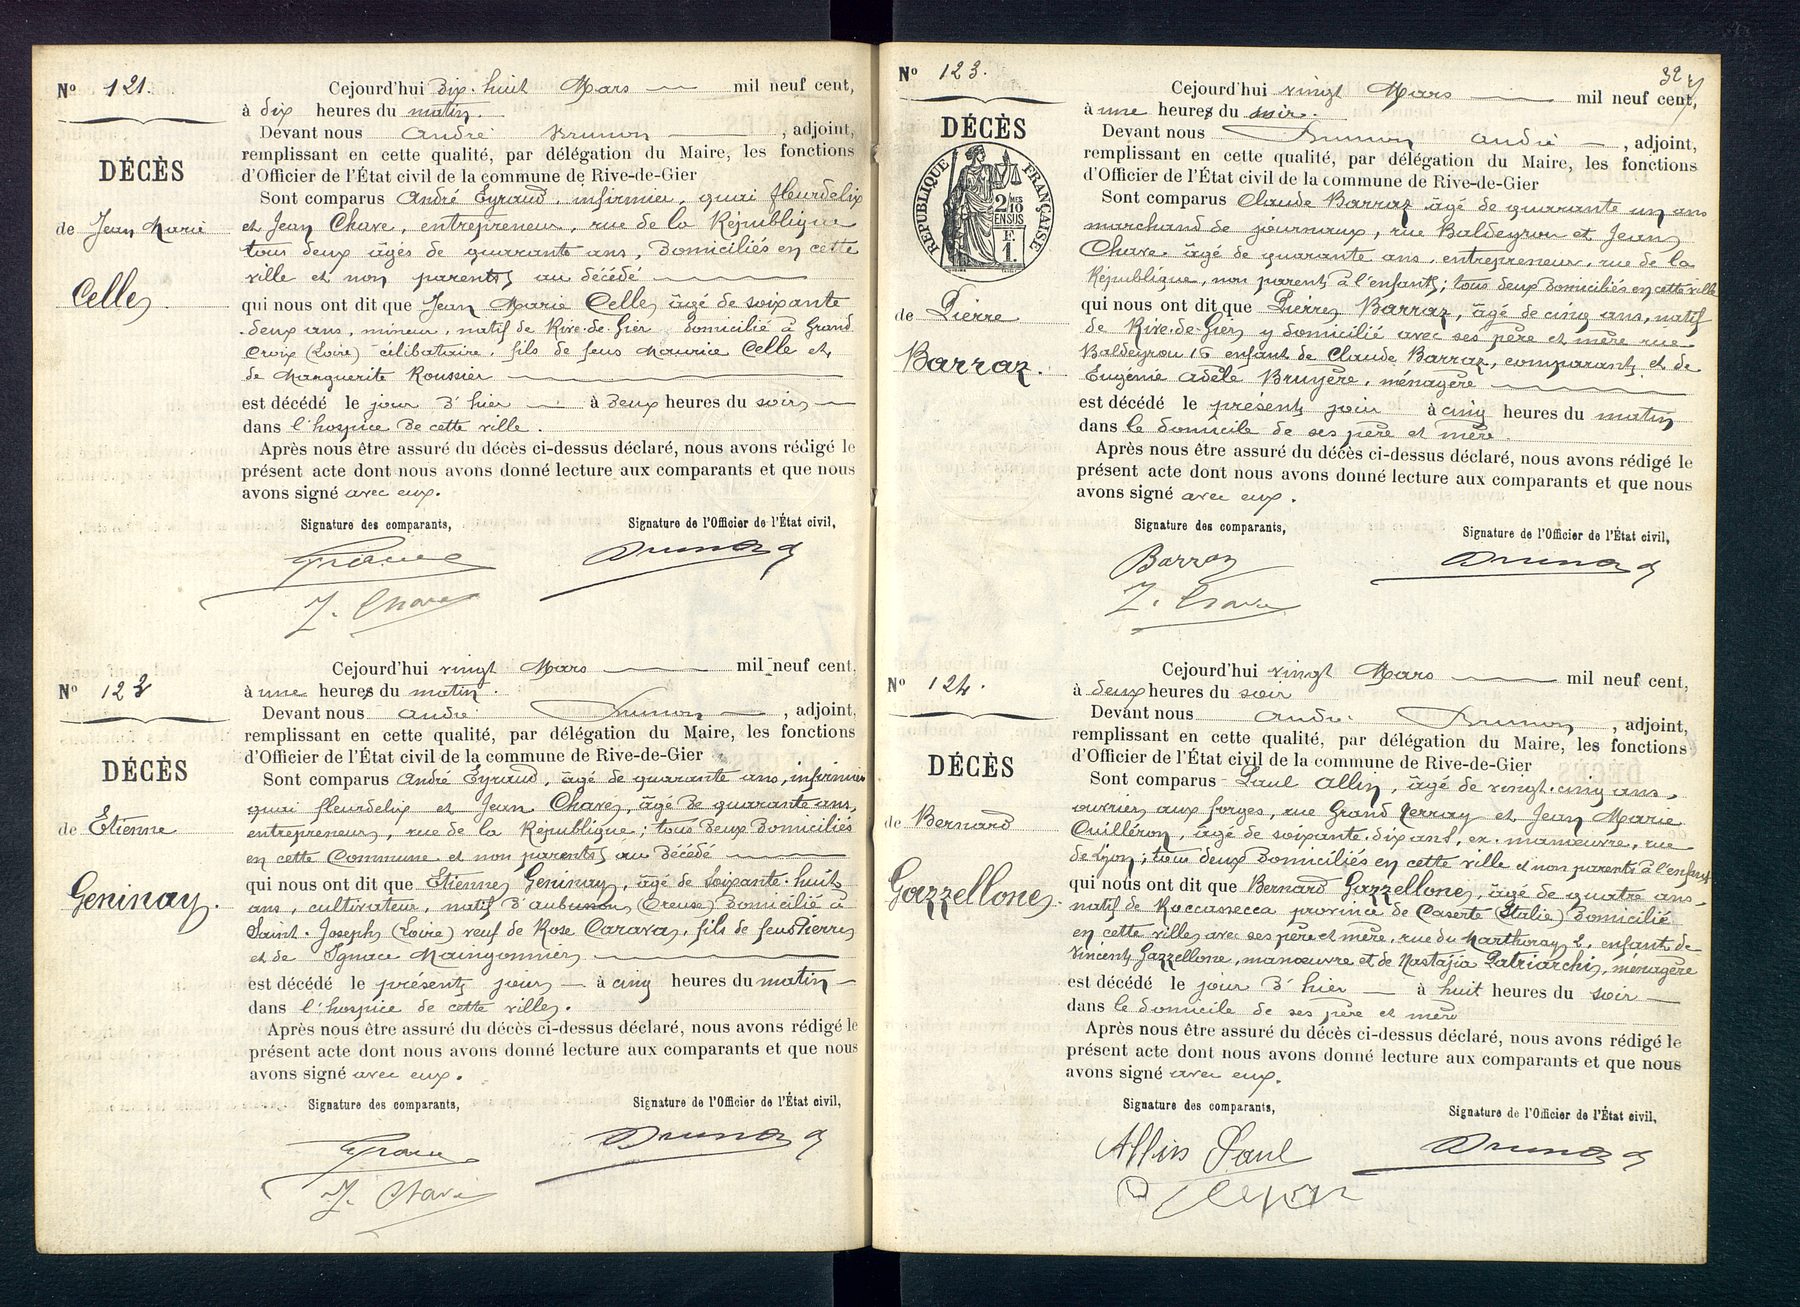 N° 121.
DÉCÈS
de Jean Marie
Celle
Cejourd'hui Dix-huit Mars mil neuf cent,
à dix heures du matin.
Devant nous André Brunon, adjoint,
remplissant en cette qualité, par délégation du Maire, les fonctions
d'Officier de l'État civil de la commune de Rive-de-Gier
Sont comparus André Eyraud, infirmier, quai fleurdelix
et Jean Chave, entrepreneur, rue de la République
tous deux âgés de quarante ans, Domiciliés en cette
ville et non parents au décédé
qui nous ont dit que Jean Marie Celle, âgé de soixante
deux ans, mineur, natif de Rive-de-Gier domicilié à Grand
Croix (Loire) célibataire, fils de feus Maurice Celle et
de Marguerite Roussier
est décédé le jour d'hier à Deux heures du soir
dans l'hospice de cette ville.
Après nous être assuré du décès ci-dessus déclaré, nous avons rédigé le
présent acte dont nous avons donné lecture aux comparants et que nous
avons signé avec eux.
Signature des comparants, Signature de l'Officier de l'État civil,
J. Chave
N° 122
DÉCÈS
de Etienne
Geninay.
Cejourd'hui vingt Mars mil neuf cent,
à une heures du matin.
Devant nous André Brunon, adjoint,
remplissant en cette qualité, par délégation du Maire, les fonctions
d'Officier de l'État civil de la commune de Rive-de-Gier
Sont comparus André Eyraud, âgé de quarante ans, infirmier
quai fleurdelix et Jean Chave, âgé de quarante ans,
entrepreneur, rue de la République; tous Deux Domiciliés
en cette Commune et non parents au Décédé
qui nous ont dit que Etienne Geninay, âgé de soixante-huit
ans, cultivateur, natif d'aubusson (Creuse) Domicilié à
Saint-Joseph (Loire) veuf de Rose Carava, fils de feus Pierre
et de Ignace Maingonnier
est décédé le présent jour à cinq heures du matin
dans l'hospice de cette ville.
Après nous être assuré du décès ci-dessus déclaré, nous avons rédigé le
présent acte dont nous avons donné lecture aux comparants et que nous
avons signé avec eux.
Signature des comparants, Signature de l'Officier de l'État civil,
J. Chave
32
N° 123.
DÉCÈS
RÉPUBLIQUE FRANÇAISE
2/10
EN SUS
F.
1.
de Pierre
Barraz.
Cejourd'hui vingt Mars mil neuf cent,
à une heures du soir.
Devant nous Brunon André, adjoint,
remplissant en cette qualité, par délégation du Maire, les fonctions
d'Officier de l'État civil de la commune de Rive-de-Gier
Sont comparus Claude Barraz âgé de quarante un ans
marchand de journaux, rue Baldeyrou et Jean
Chave âgé de quarante ans, entrepreneur, rue de la
République, non parent à l'enfant; tous deux Domiciliés en cette ville
qui nous ont dit que Pierre Barraz, âgé de cinq ans, natif
de Rive-de-Gier y domicilié avec ses père et mère rue
Baldeyrou 16 enfant de Claude Barraz, comparant et de
Eugénie Adèle Bruyère, ménagère
est décédé le présent jour à cinq heures du matin
dans le domicile de ses père et mère.
Après nous être assuré du décès ci-dessus déclaré, nous avons rédigé le
présent acte dont nous avons donné lecture aux comparants et que nous
avons signé avec eux.
Signature des comparants, Signature de l'Officier de l'État civil,
Barraz
J. Chave
N° 124.
DÉCÈS
de Bernard
Gazzellone.
Cejourd'hui vingt Mars mil neuf cent,
à deux heures du soir
Devant nous André Brunon, adjoint,
remplissant en cette qualité, par délégation du Maire, les fonctions
d'Officier de l'État civil de la commune de Rive-de-Gier
Sont comparus Paul Allin, âgé de vingt-cinq ans,
ouvrier aux forges, rue Grand Verray et Jean Marie
Cuilléron, âgé de soixante-dix ans, ex-manœuvre, rue
de Lyon; tous deux Domiciliés en cette ville et non parents à l'enfant
qui nous ont dit que Bernard Gazzellone, âgé de quatre ans,
natif de Roccassecca province de Caserte (Italie) Domicilié
en cette ville, avec ses père et mère, rue du Marthoray 2, enfant de
Vincent Gazzellone, manœuvre et de Nastajia Patriarchi, ménagère
est décédé le jour d'hier à huit heures du soir
dans le domicile de ses père et mère
Après nous être assuré du décès ci-dessus déclaré, nous avons rédigé le
présent acte dont nous avons donné lecture aux comparants et que nous
avons signé avec eux.
Signature des comparants, Signature de l'Officier de l'État civil,
Allin Paul